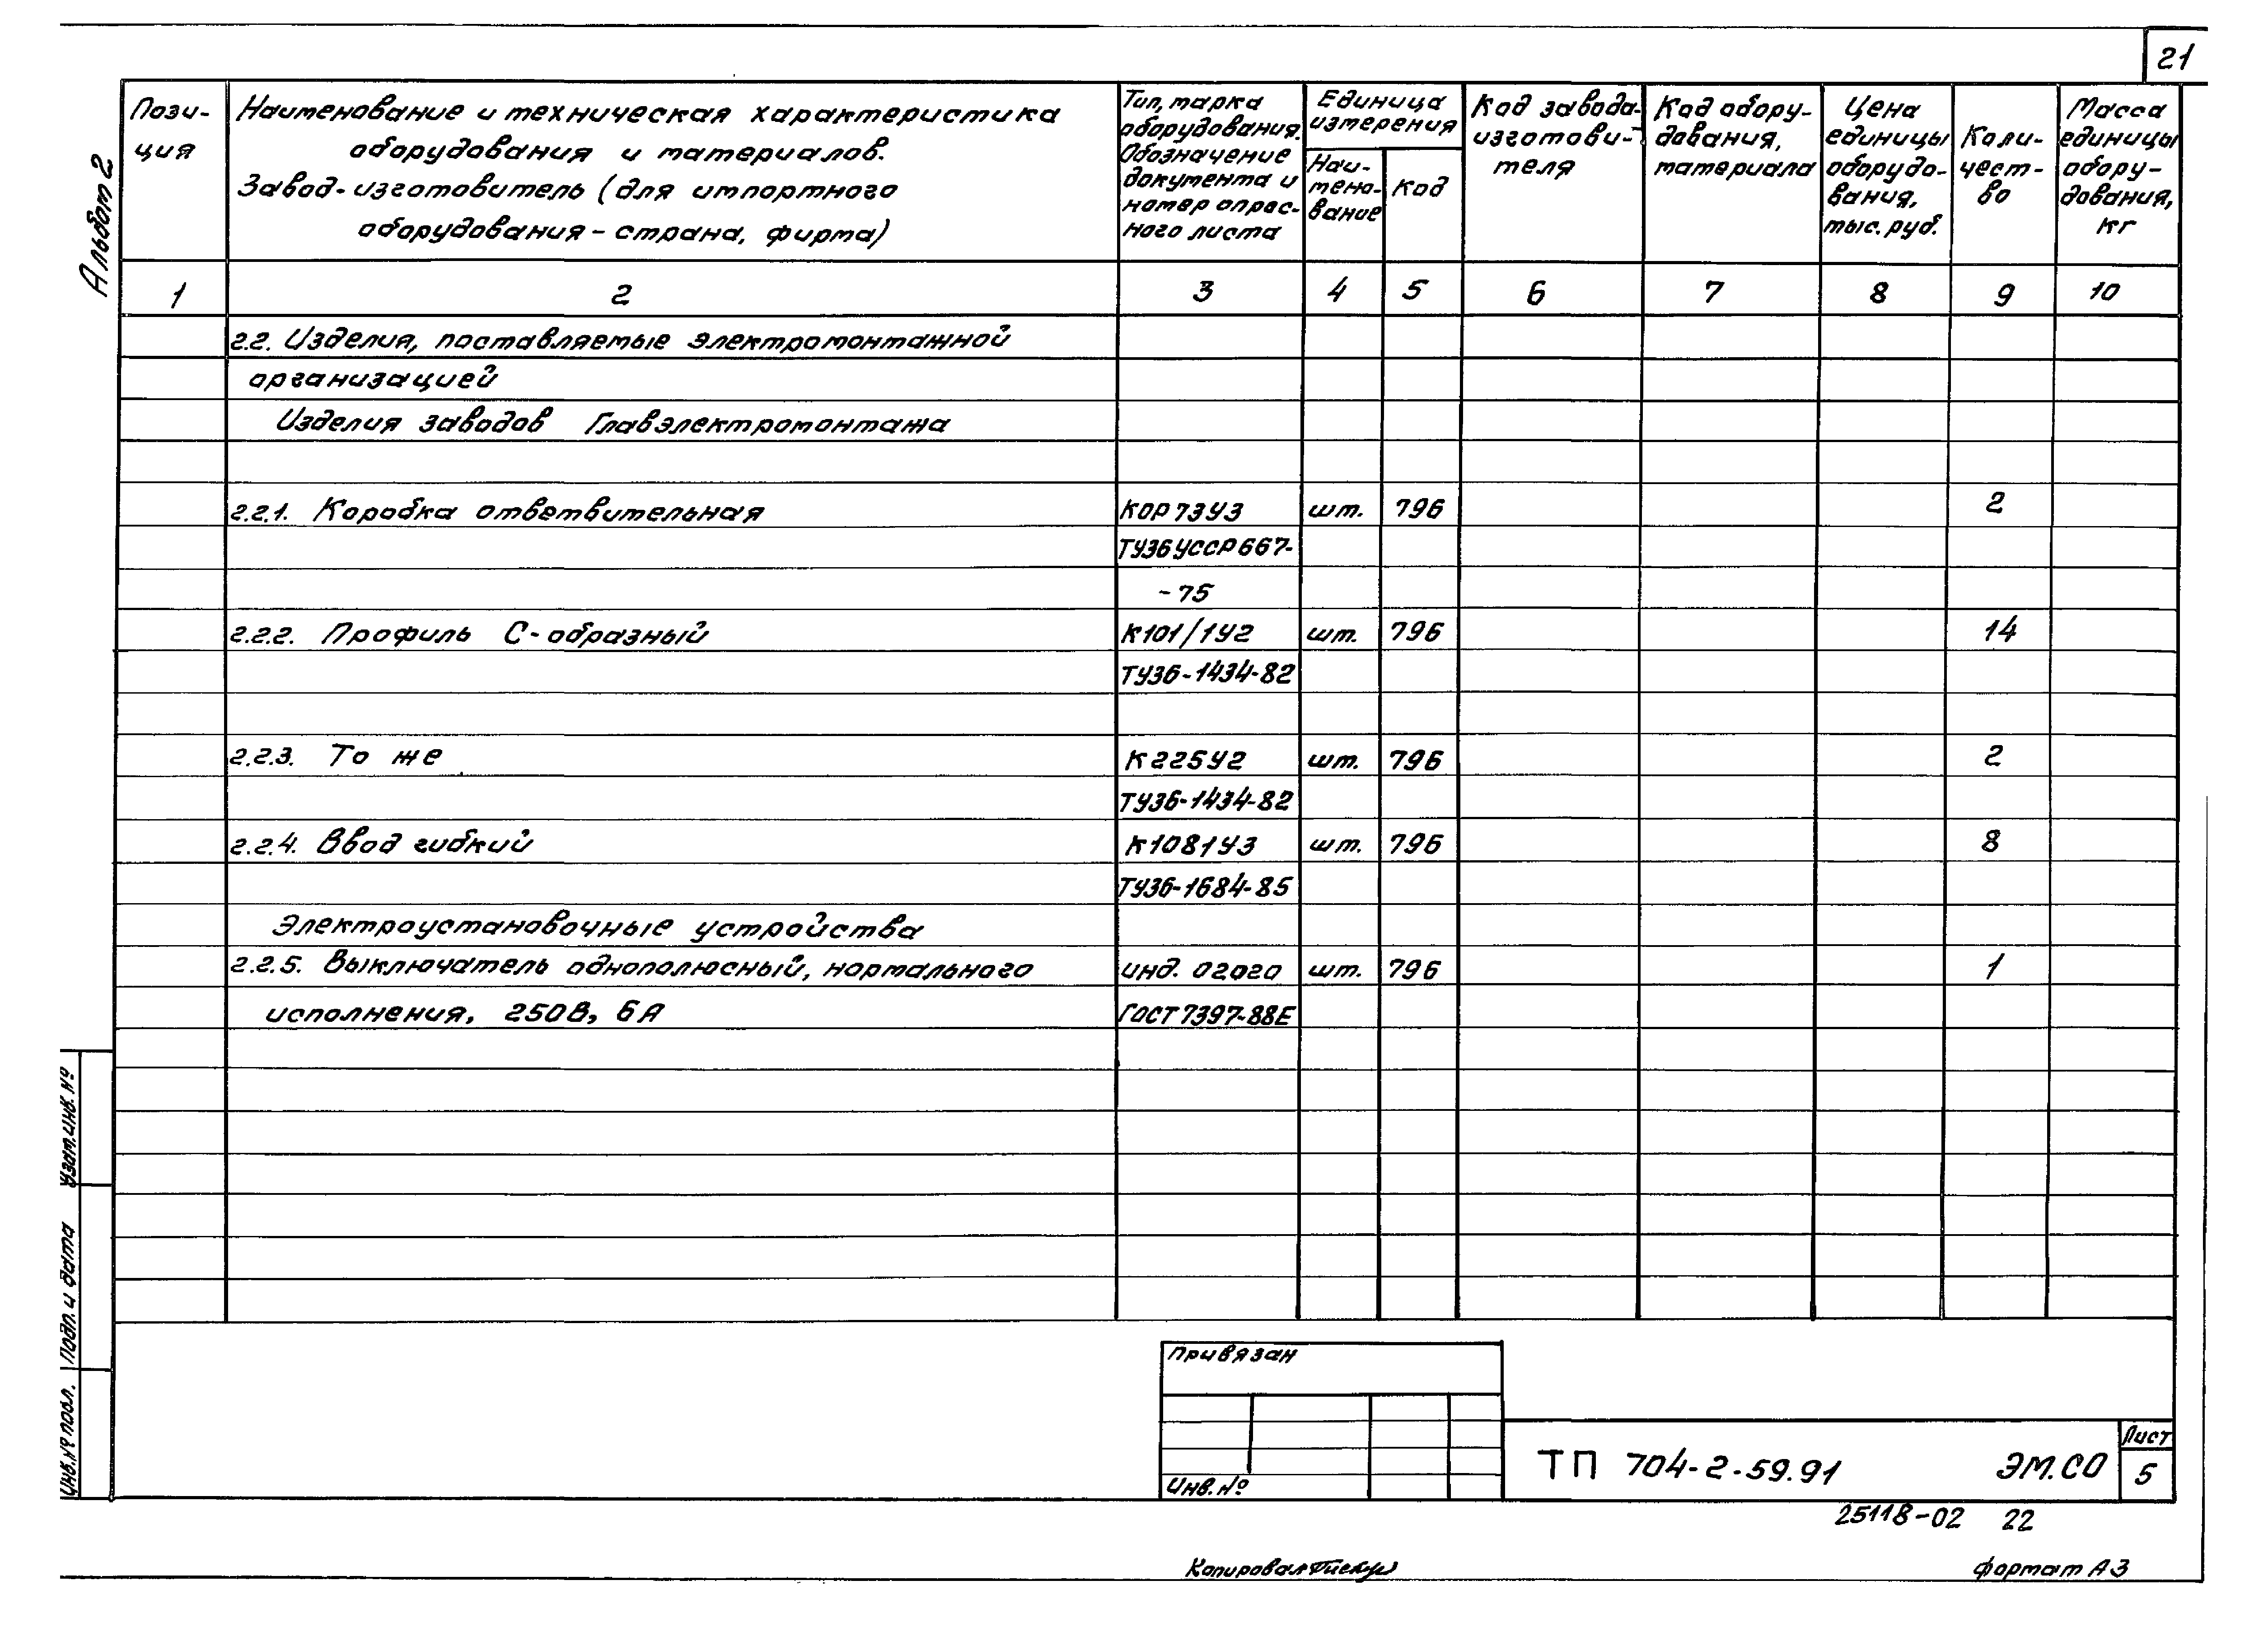 21
Альбом 2
Пози-
ция
Наименование и техническая характеристика
оборудования и материалов.
Завод-изготовитель (для импортного
оборудования - страна, фирма)
Тип, марка
оборудования.
Обозначение
документа и
номер опрос-
ного листа
Единица
измерения
Наи-
мено-
вание
Код
Код завода-
изготови-
теля
Код обору-
дования,
материала
Цена
единицы
оборудо-
вания,
тыс. руб.
Коли-
чест-
во
Масса
единицы
обору-
дования,
кг
1 2 3 4 5 6 7 8 9 10
2.2. Изделия, поставляемые электромонтажной
организацией
Изделия заводов Главэлектромонтажа
2.2.1. Коробка ответвительная КОР73У3 шт. 796 2
ТУ36УССР667-
-75
2.2.2. Профиль С-образный К101/1У2 шт. 796 14
ТУ36-1434-82
2.2.3. То же К225У2 шт. 796 2
ТУ36-1434-82
2.2.4. Ввод гибкий К1081У3 шт. 796 8
ТУ36-1684-85
Электроустановочные устройства
2.2.5. Выключатель однополюсный, нормального инд. 02020 шт. 796 1
исполнения, 250В, 6А ГОСТ7397-88Е
Взам. инв. №
Подп. и дата
Инв. № подл.
Привязан
Инв. №
ТП 704-2-59.91 ЭМ.СО
Лист
5
25118-02 22
Копировал
формат А3